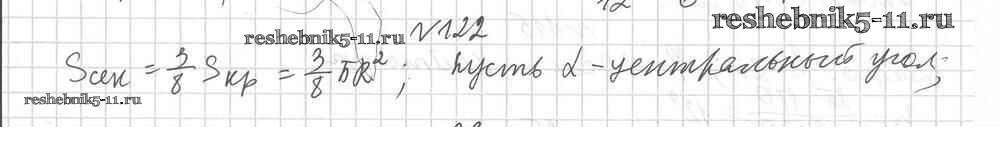 reshebnik5-11.ru
reshebnik5-11.ru №122
Sсек = 3/8 Sкр = 3/8 πR²; пусть α - центральный угол;
reshebnik5-11.ru